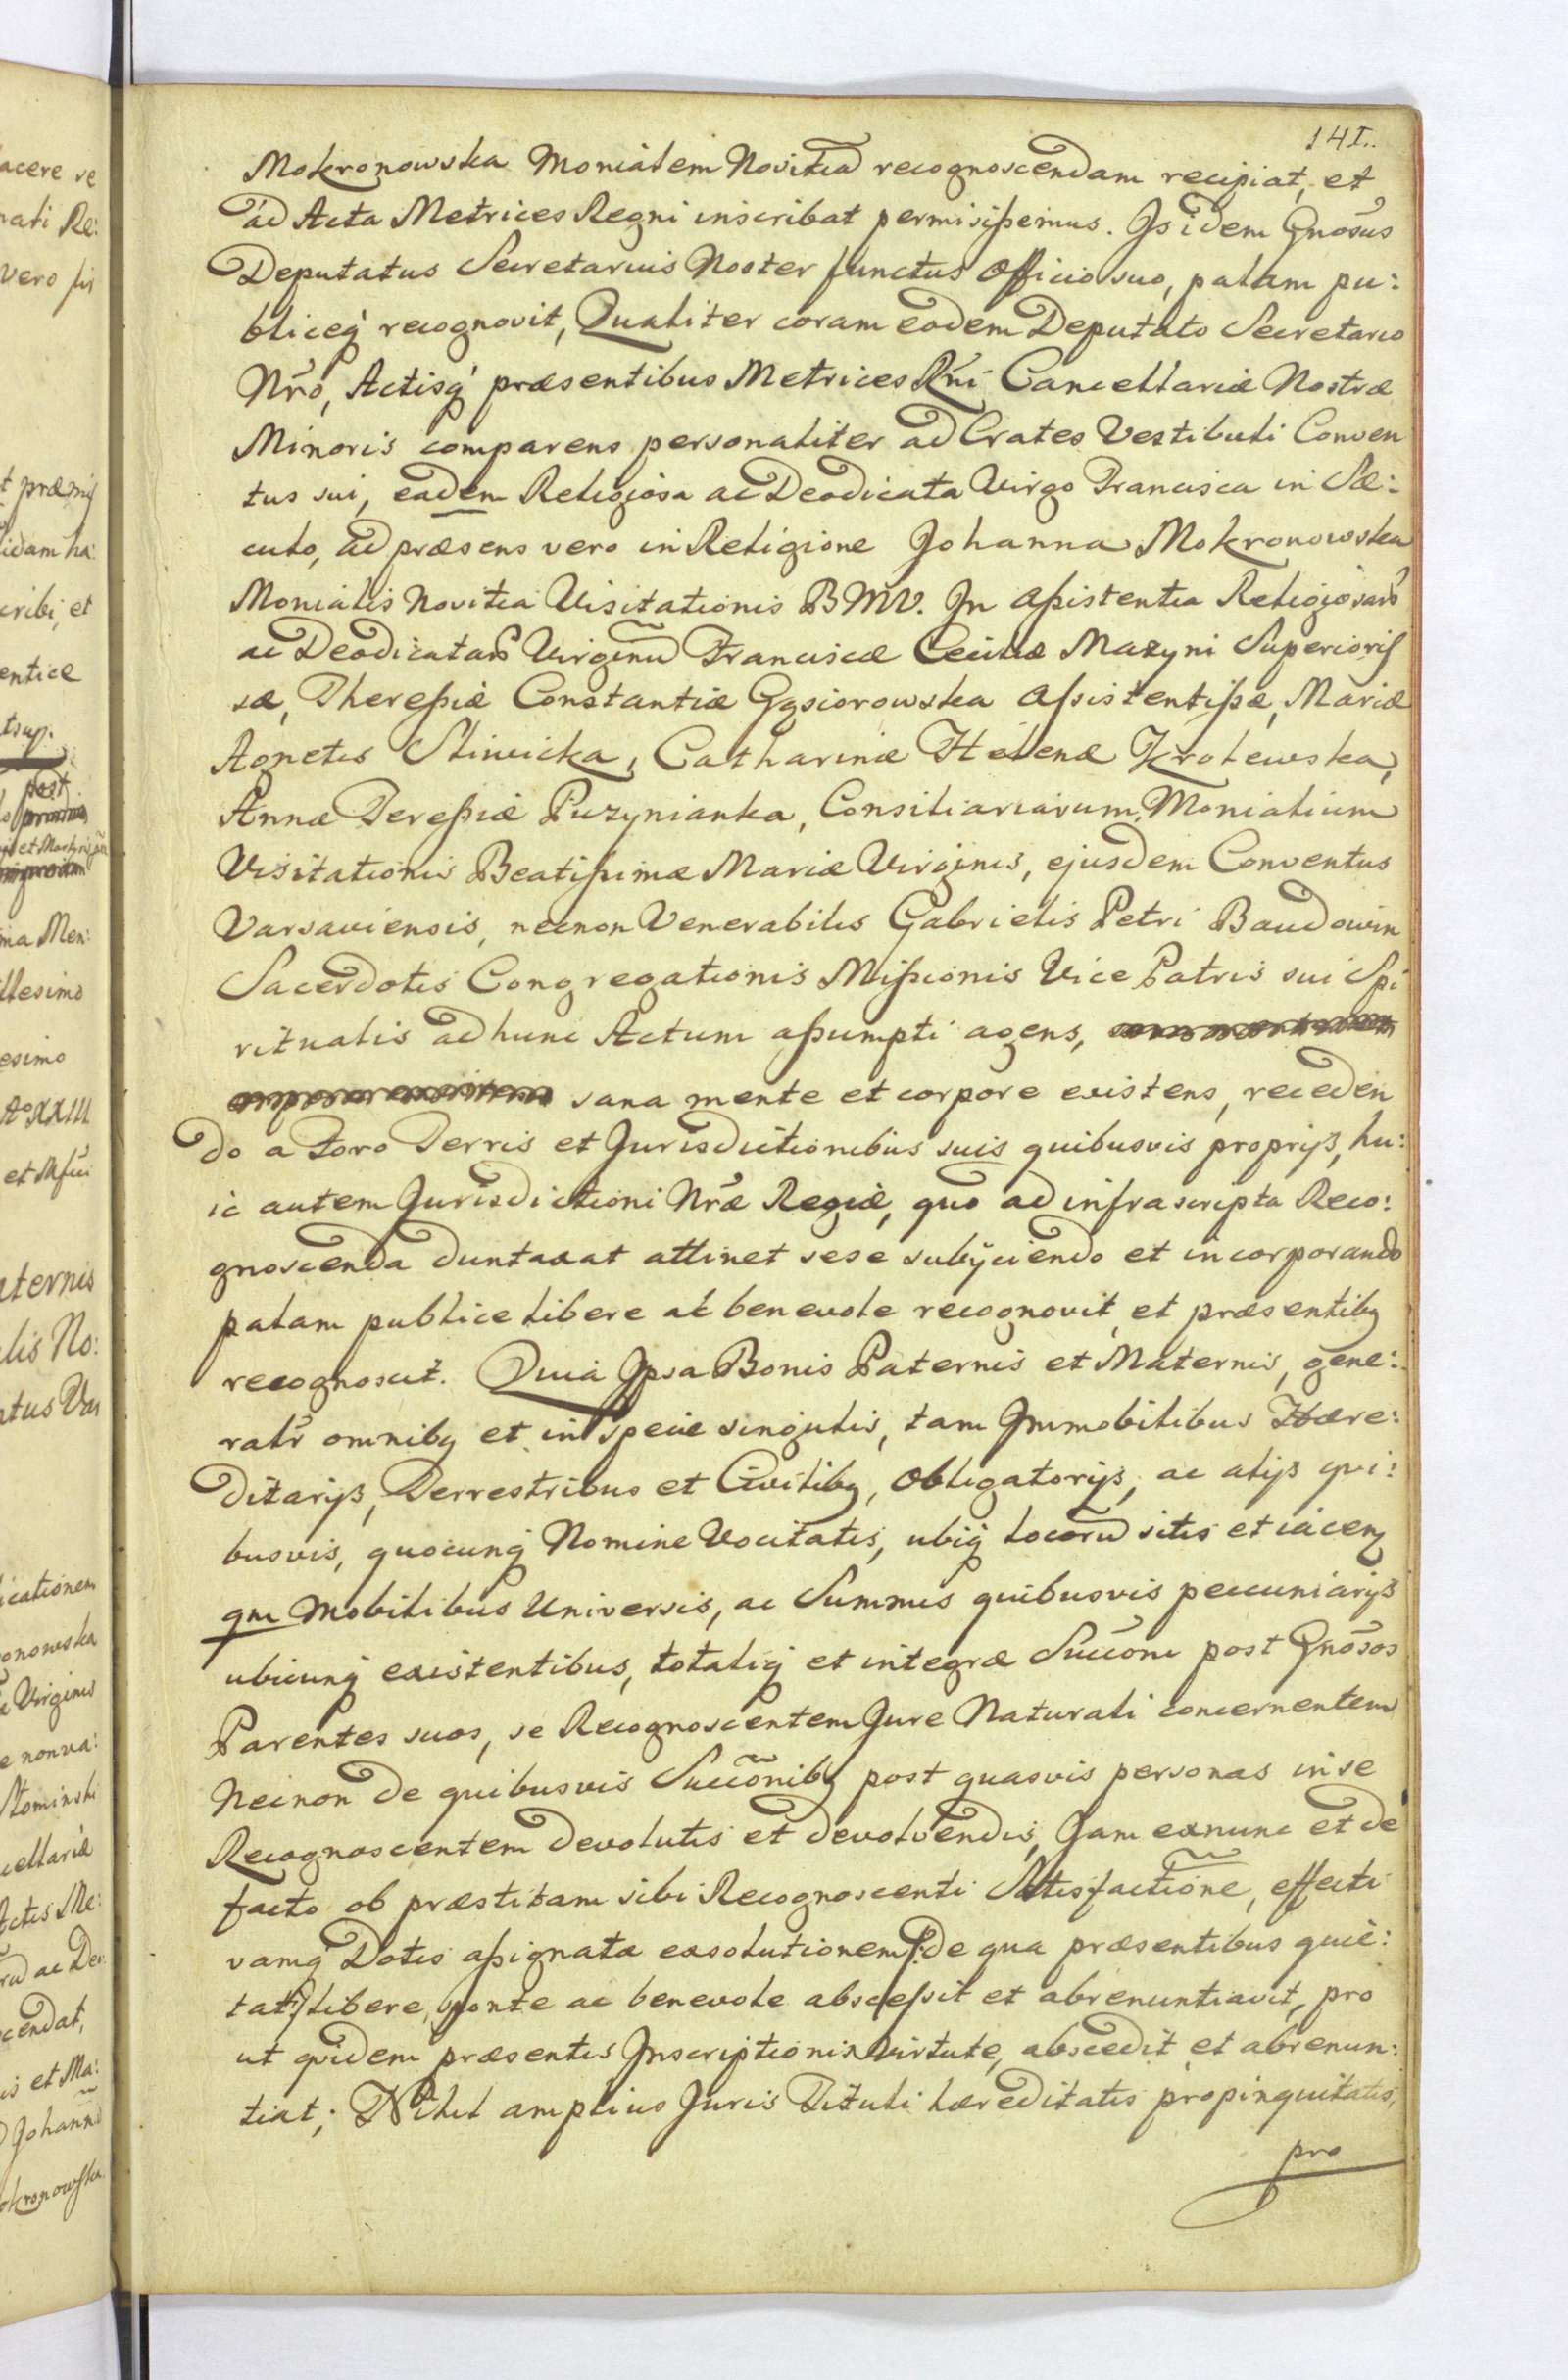 141.
Mokronowska Monialem Novitiã recognoscendam recipiat, et
ad Acta Metrices Regni inscribat permisißemus. Is idem Gnõsus
Deputatus Secretarius Noster functus Officio suo, palam pu:
bliceq́ recognovit, Qualiter coram eodem Deputato Secretario
Nr̃o, Actisq́ præsentibus Metrices Rñi Cancellariæ Nostræ
Minoris comparens personaliter ad Crates Vestibuli Conven
tus sui, eadem Religiosa ac Deodicata Virgo Francisca in Sæ:
culo, ad præsens vero in Religione Johanna Mokronowska
Monialis Novitia Visitationis BMV. In Aßistentia Religiosarũ
ac Deodicatarũ Virginũ Franciscæ Ceciliæ Mazyni Superioris
sæ, Thereßiæ Constantiæ Gąsiorowska Aßistentißæ, Mariæ
Agnetis Sliwicka, Catharinæ Helenæ Krolewska,
Annæ Tereßiæ Puzynianka, Consiliariarum, Monialium
Visitationis Beatißimæ Mariæ Virginis, ejusdem Conventus
Varsaviensis, necnon Venerabilis Gabrielis Petri Baudowin
Sacerdotis Congregationis Mißionis Vice Patris sui Spi
ritualis ad hunc Actum aßumpti agens,
sana mente et corpore existens, receden
do a Foro Terris et Jurisdictionibus suis quibusvis proprijs, hu:
ic autem Jurisdictioni Nr̃æ Regiæ, quo ad infrascripta Reco:
gnoscenda duntaxat attinet sese subÿciendo et incorporando
palam publice libere ac benevole recognovit, et præsentibꝫ
recognoscit. Quia Ipsa Bonis Paternis et Maternis, gene:
ralr̃ omnibꝫ et in Specie singulis, tam Immobilibus Hære:
ditarijs, Terrestribus et Civilibꝫ, Obligatorijs, ac alijs qui:
busvis, quocunq́ Nomine Vocitatis, ubiq́ locorũ sitis et iacenꝫ
qm Mobilibus Universis, ac Summis quibusvis pecuniarijs
ubicunq́ existentibus, totaliq́ et integræ Succõni post Gnõsos
Parentes suos, se Recognoscentem Jure Naturali concernentem
Necnon de quibusvis Succõnibꝫ post quasvis personas in se
Recognoscentem devolutis et devolvendis, Jam exnunc et de
facto ob præstitam sibi Recognoscenti Satisfactionẽ, effecti
vamq́ Dotis aßignatæ exsolutionem /:de qua præsentibus quie:
tat:/ libere, sponte ac benevole abscessit et abrenuntiavit, pro
ut quidem præsentis Inscriptionis Virtute, abscedit et abrenun:
tiat; Nihil amplius Juris Tituli hæreditatis propinquitatis,
pro